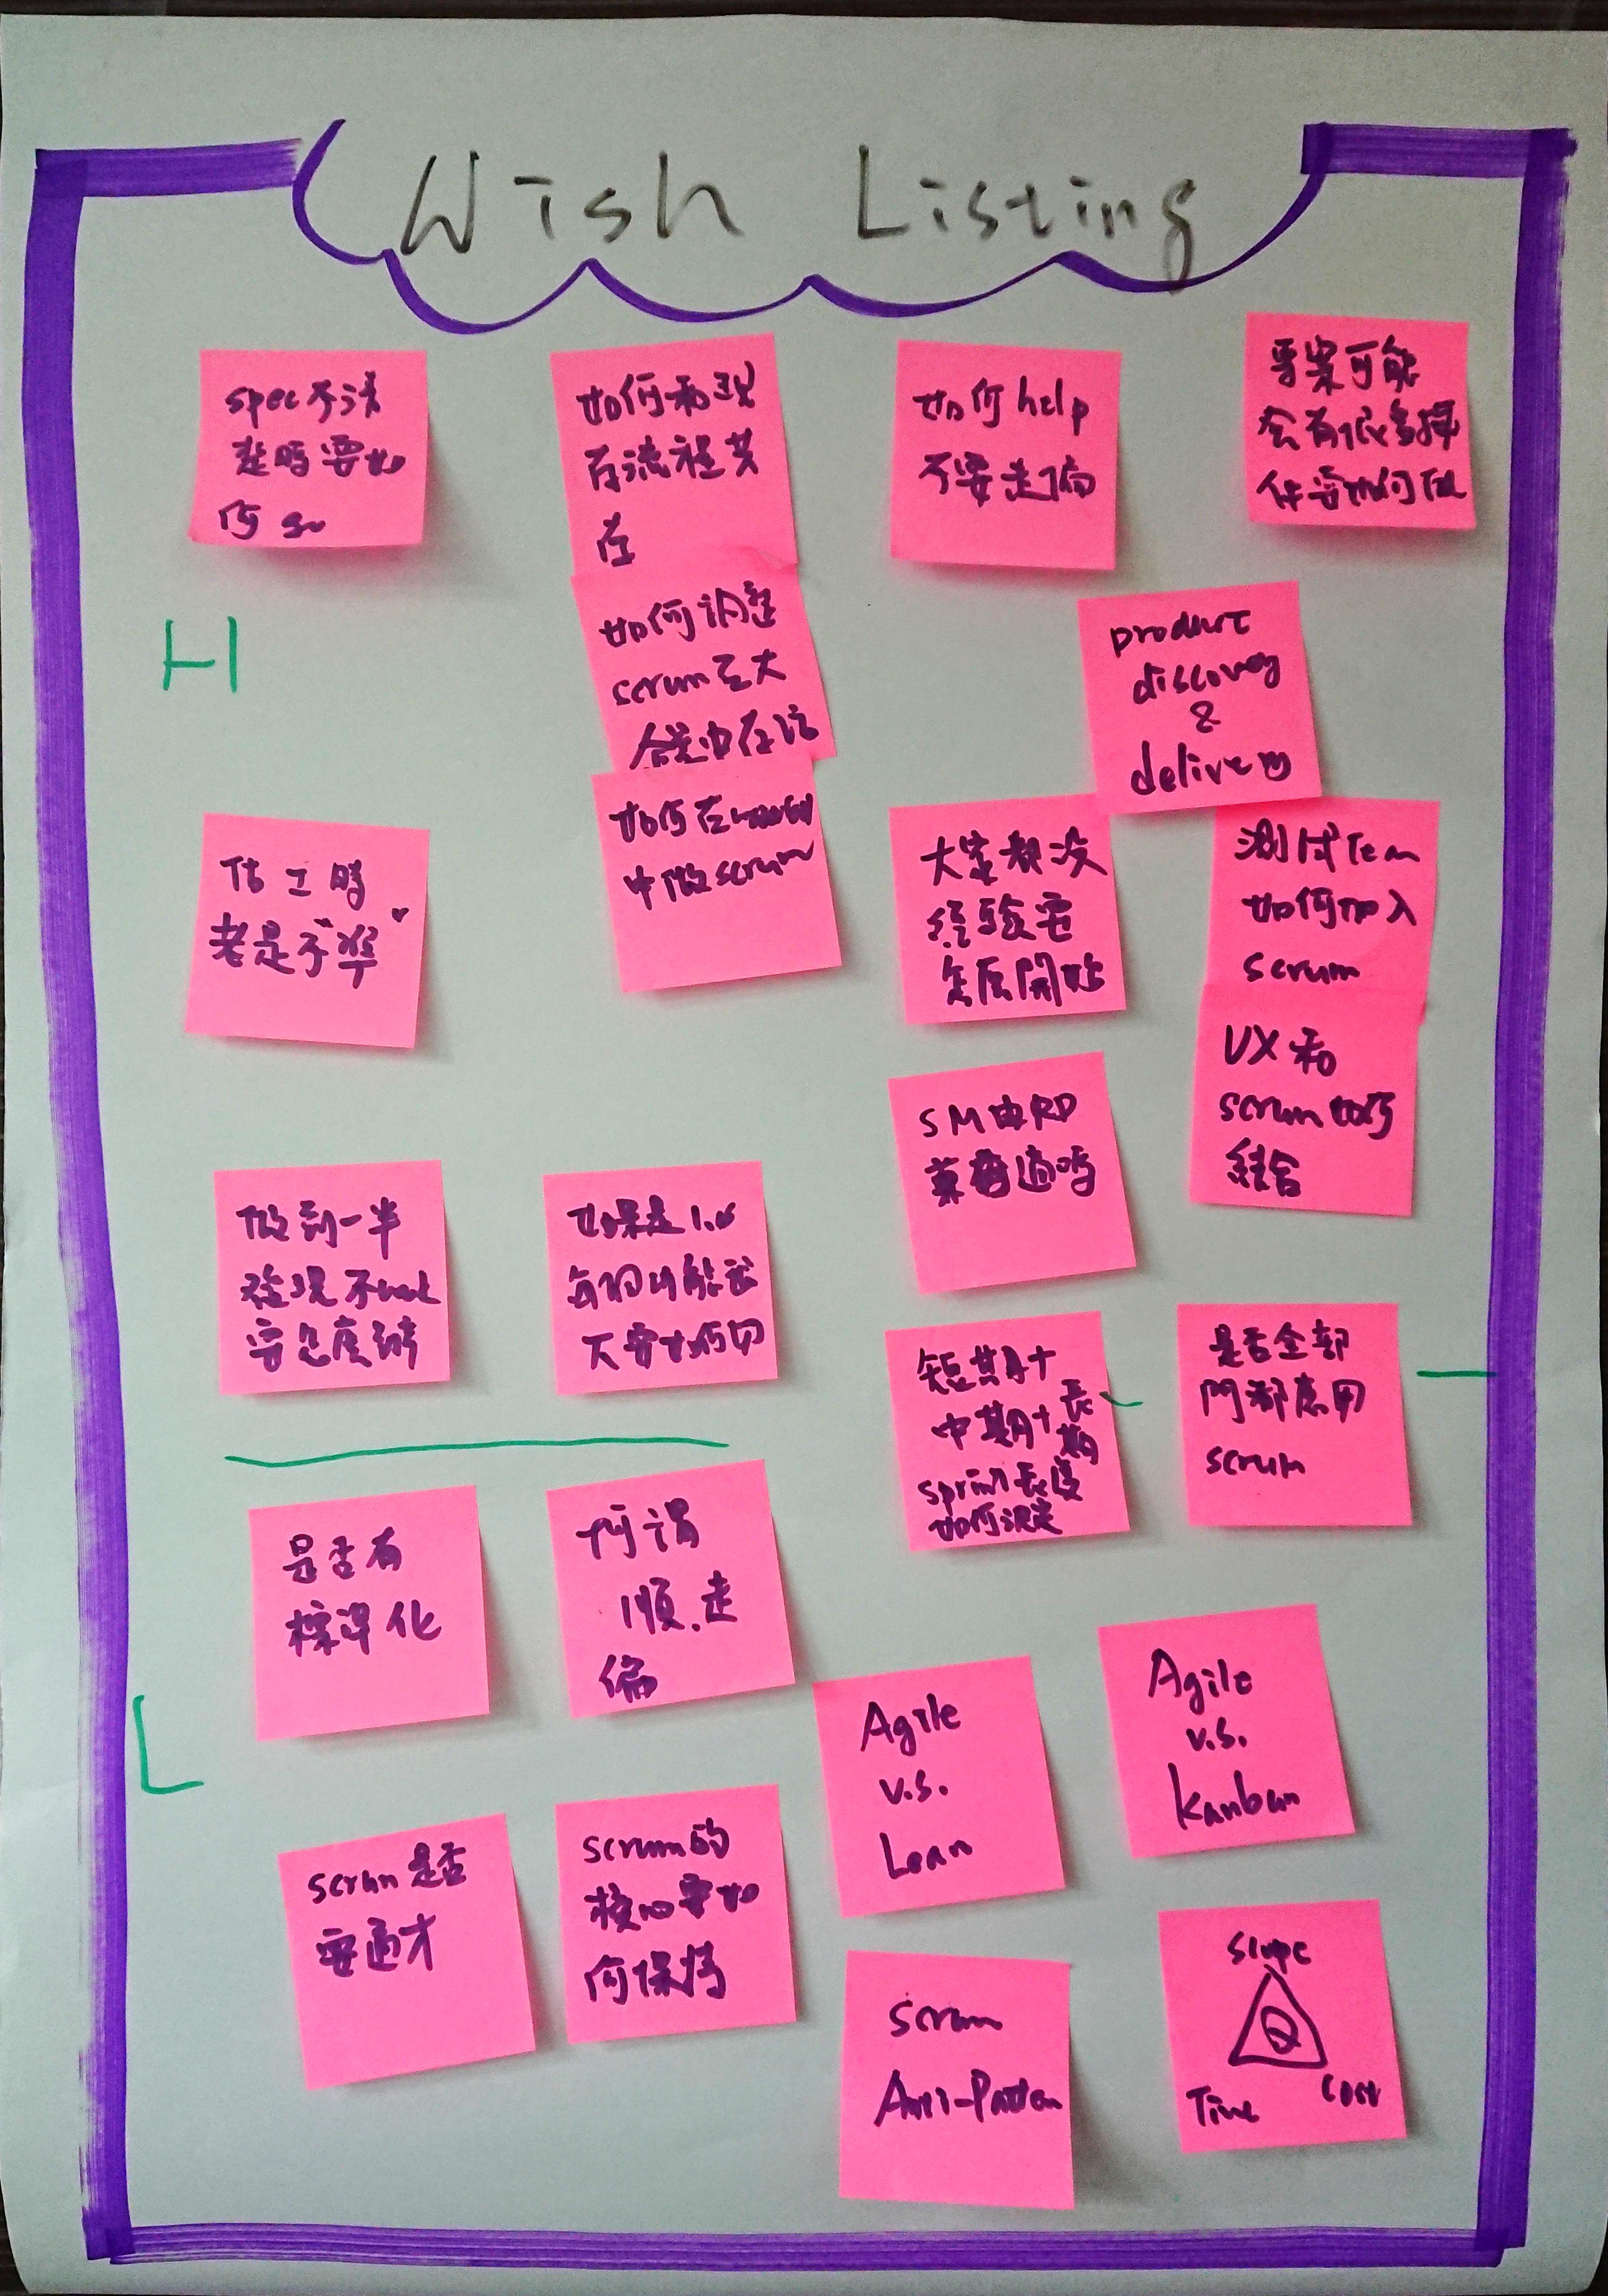 Wish Listing
spec不清
楚時要如
何 go
如何和現
有流程共
存
如何help
不要走偏
專案可能
會有很多
如何調整
scrum至大
product
discovery
&
delivery
H
估工時
老是不"準"
如何在
中做scrum
大家都沒
經驗要
怎麼開始
測試Team
如何加入
scrum
UX和
scrum如何
結合
SM由RD
兼適適嗎
做到一半
發現不work
要怎麼辦
如果是1.0
短期+
中期+長期
sprint長度
如何決定
是否全部
門都應用
scrum
是否有
標準化
何謂
順.走
偏
L
Agile
v.s.
Lean
Agile
v.s.
Kanban
scrum是否
要通才
scrum的
核心要如
何保持
Scrum
Anti-Pattern
Slope
Q
Time
Cost